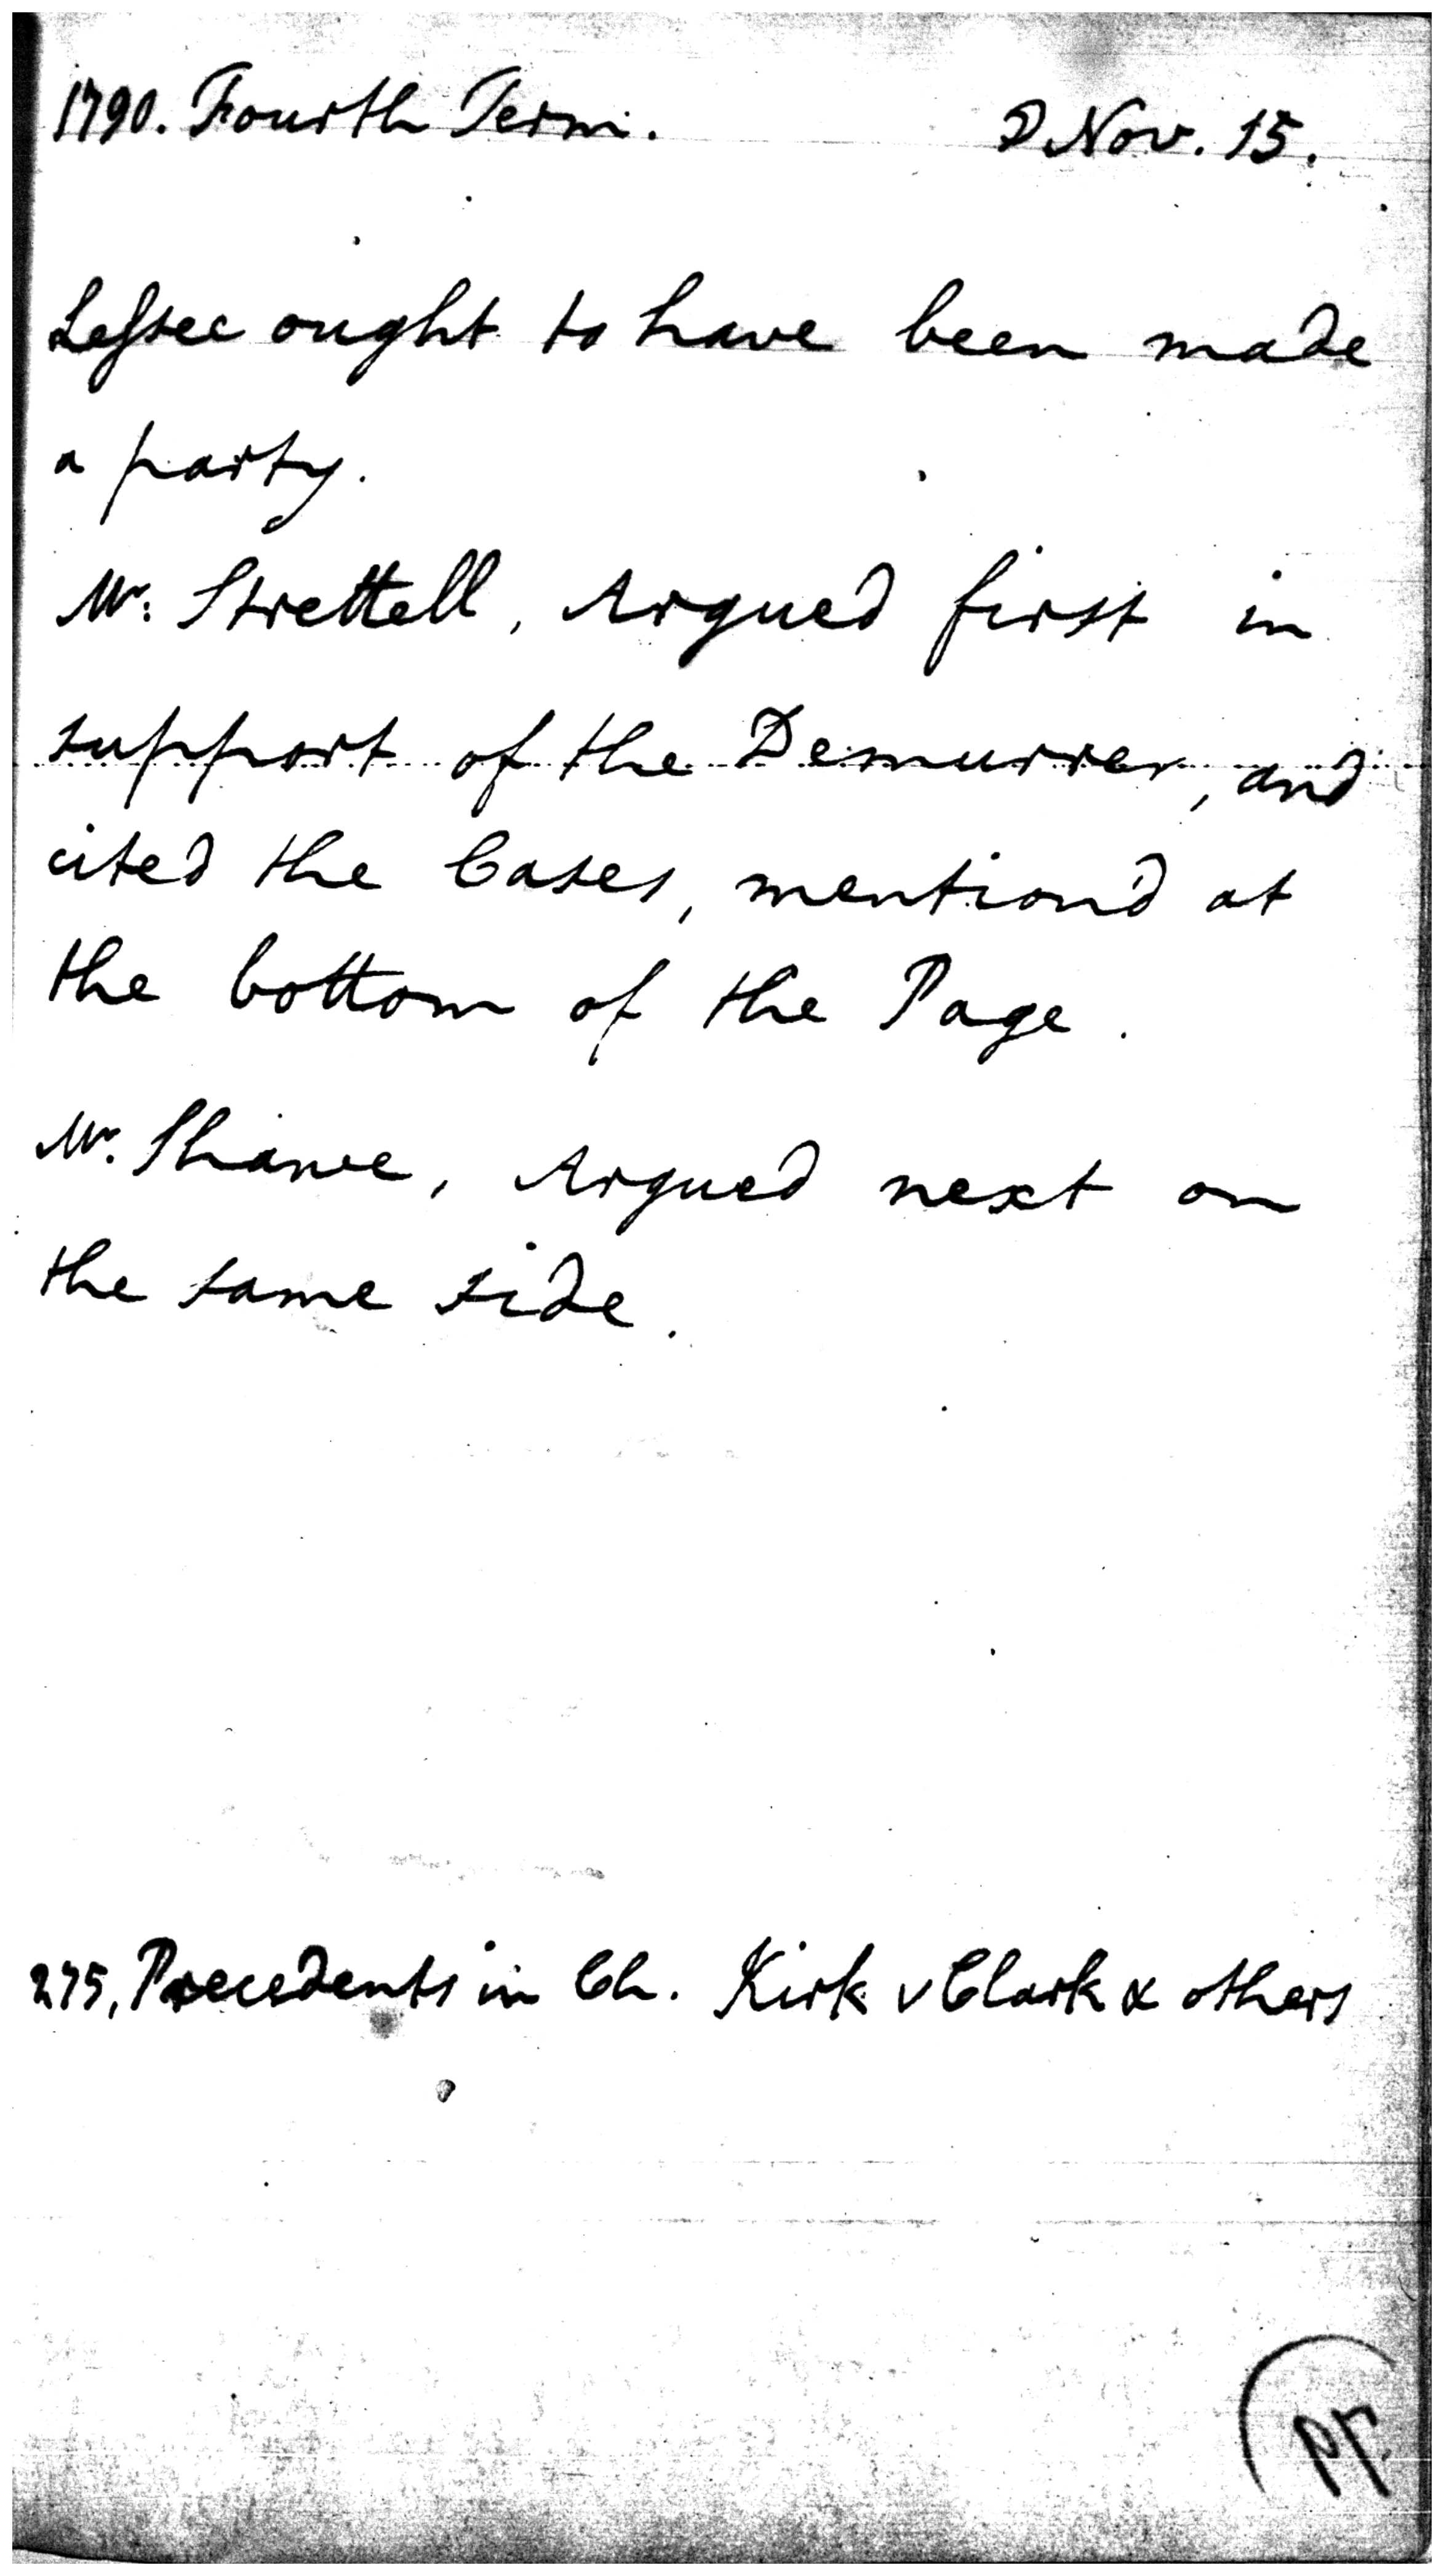 1790. Fourth Term. ☽ Nov. 15.
Leſsee ought to have been made
a party.
Mr: Strettell, Argued first in
support of the Demurrer, and
cited the Cases, mention'd at
the bottom of the Page.
Mr. Shawe, Argued next on
the same side.
275, Precedents in Ch. Kirk v Clark & others